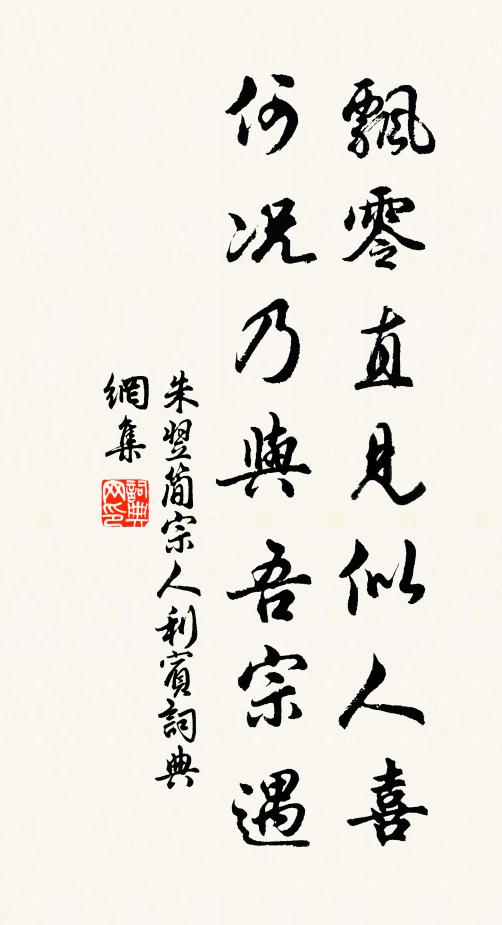 飄零直見似人喜
何况乃與吾宗遇
朱翌簡宗人利賓詞典
網集
詞典網印